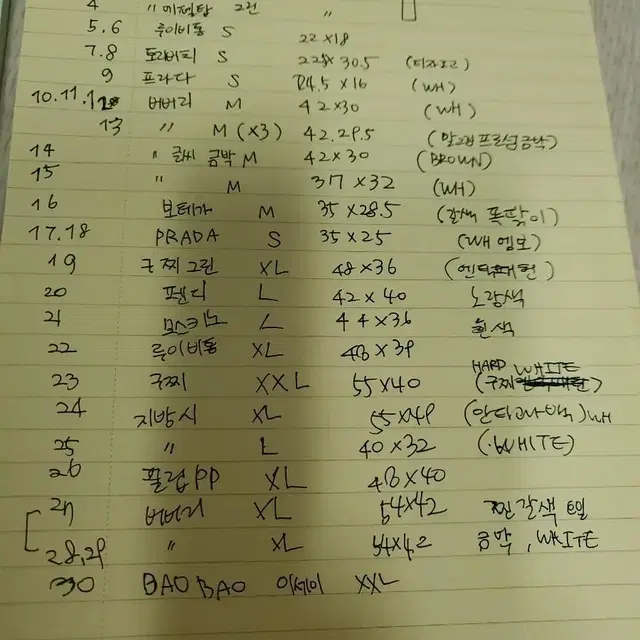 4 〃 에펠탑 2건 〃
5.6 루이비통 S 22×18
7.8 토리버치 S 30.5
9 프라다 S 24.5×16 (WH)
10.11.12 버버리 M 42×30 (WH)
13 〃 M (×3) 42.29.5
14 〃 글씨 금박 M 42×30 (BROWN)
15 〃 M 37×32 (WH)
16 보테가 M 35×28.5
17.18 PRADA S 35×25 (WH 엠보)
19 구찌그린 XL 48×36
20 펜디 L 42×40 노랑색
21 모스키노 L 44×36 흰색
22 루이비통 XL 48×39
23 구찌 XXL 55×40 HARD WHITE (구찌
24 지방시 XL 55×49 WH
25 〃 L 40×32 (WHITE)
26 필립PP XL 48×40
27 버버리 XL 54×42 찐갈색
28,29 〃 XL 54×42 금박, WHITE
30 BAO BAO 이세이 XXL